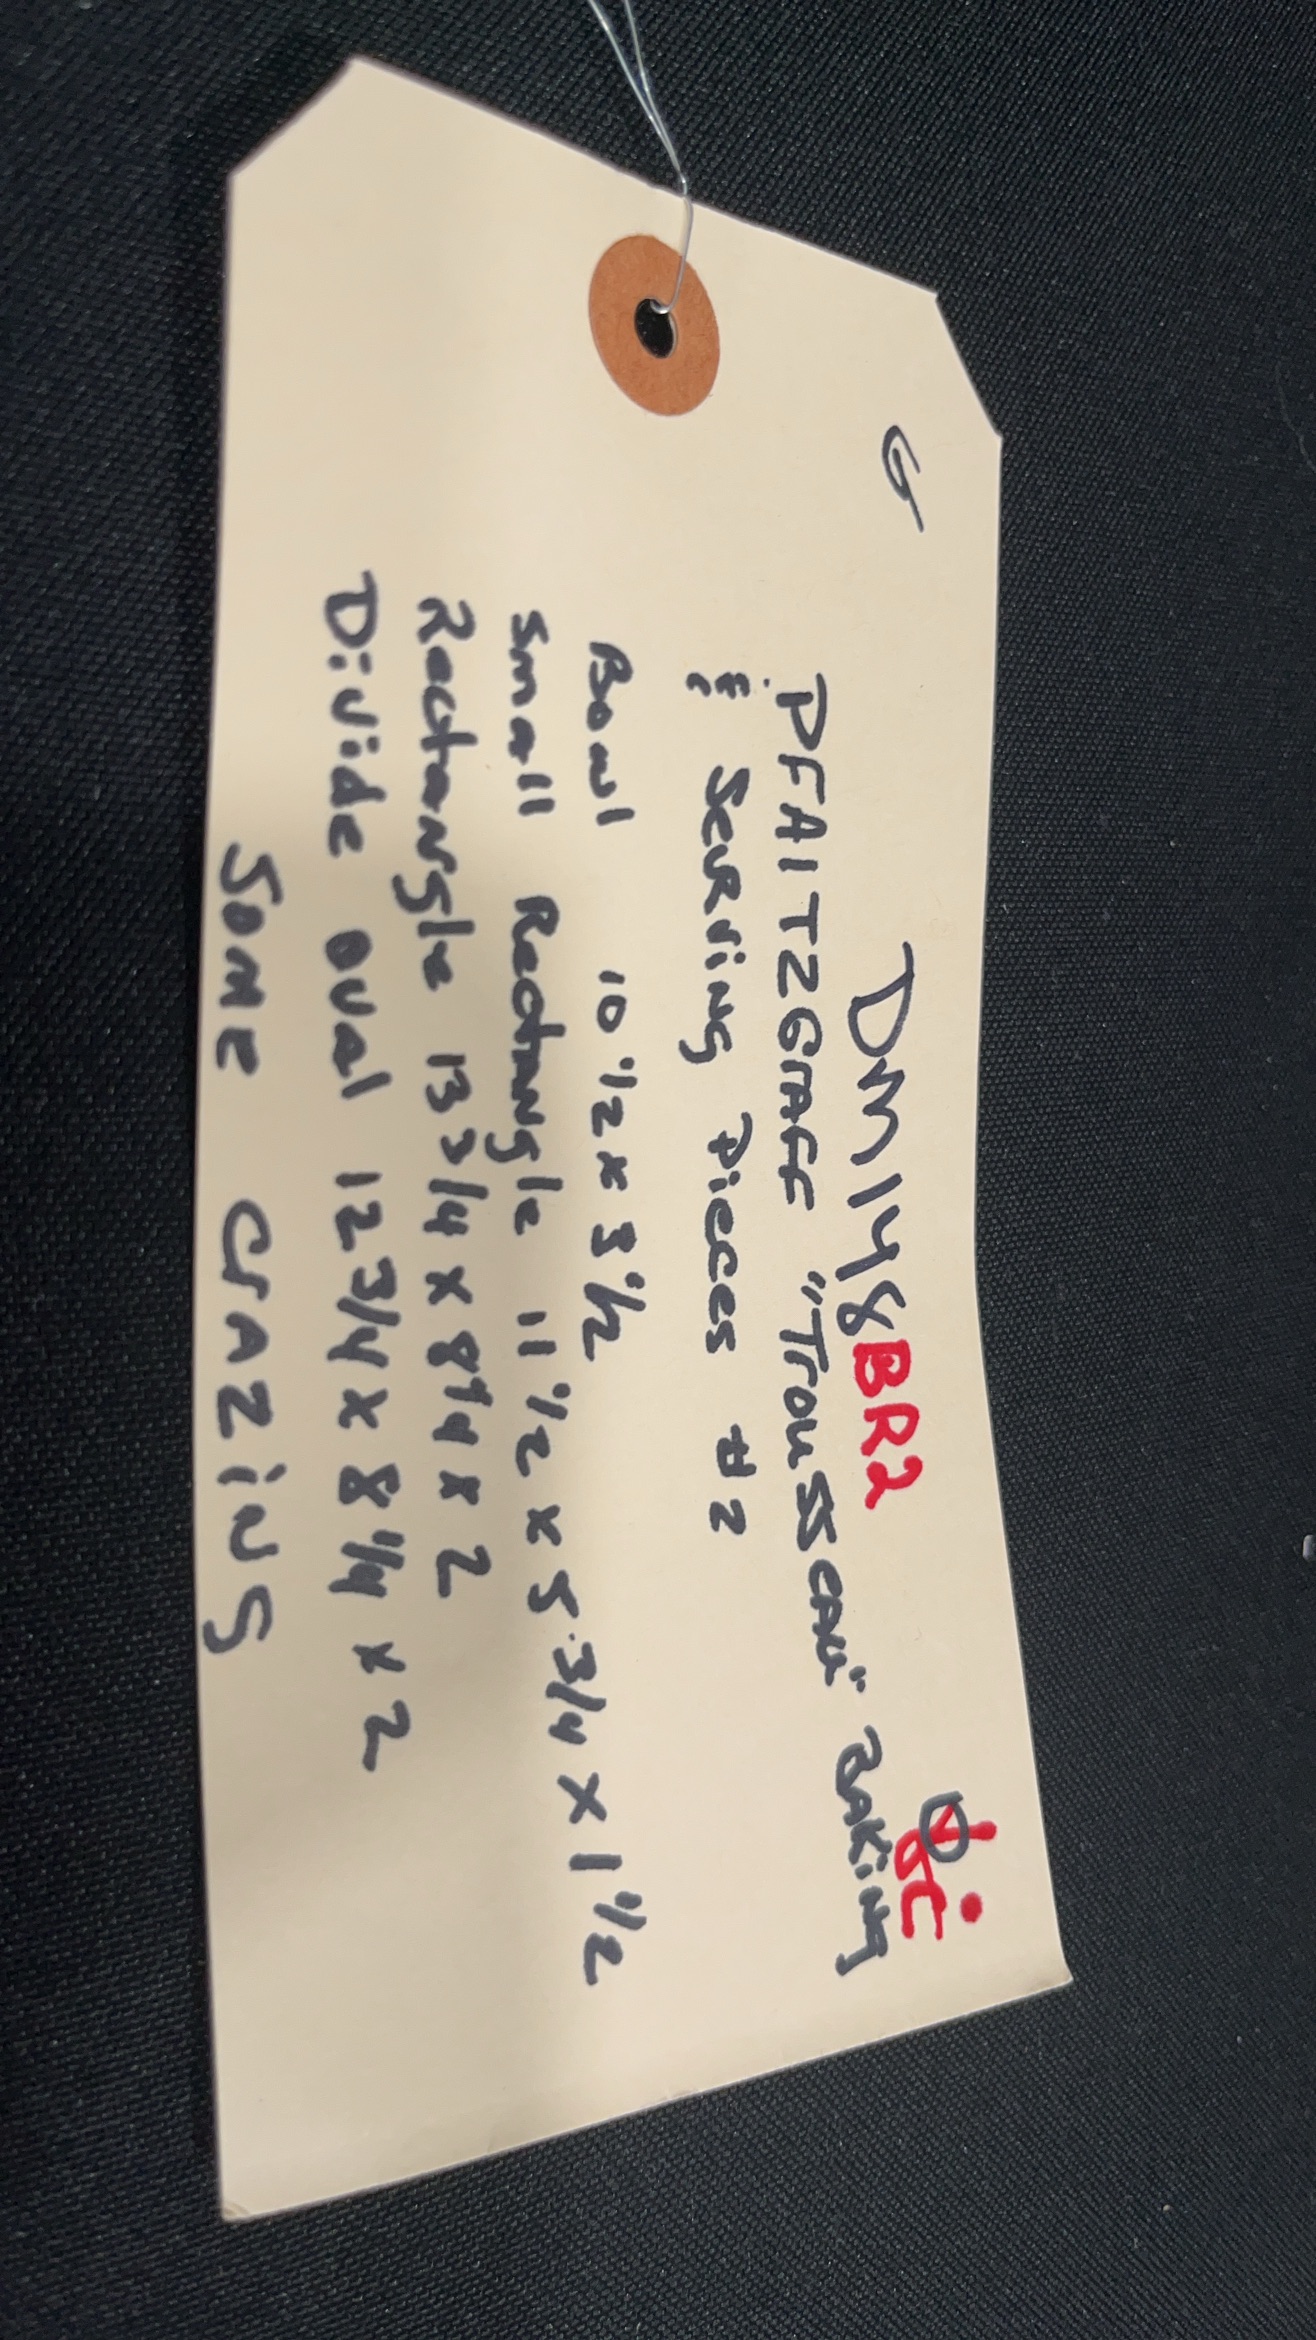 G
DM148BR2
PFAITZGRAFF "Trousseau" BAKING
& Serving Pieces #2
Bowl 10 1/2 x 3 1/2
Small Rectangle 11 1/2 x 5 3/4 x 1 1/2
Rectangle 13 3/4 x 8 1/4 x 2
Divide oval 12 3/4 x 8 1/4 x 2
Some CrAZiNG